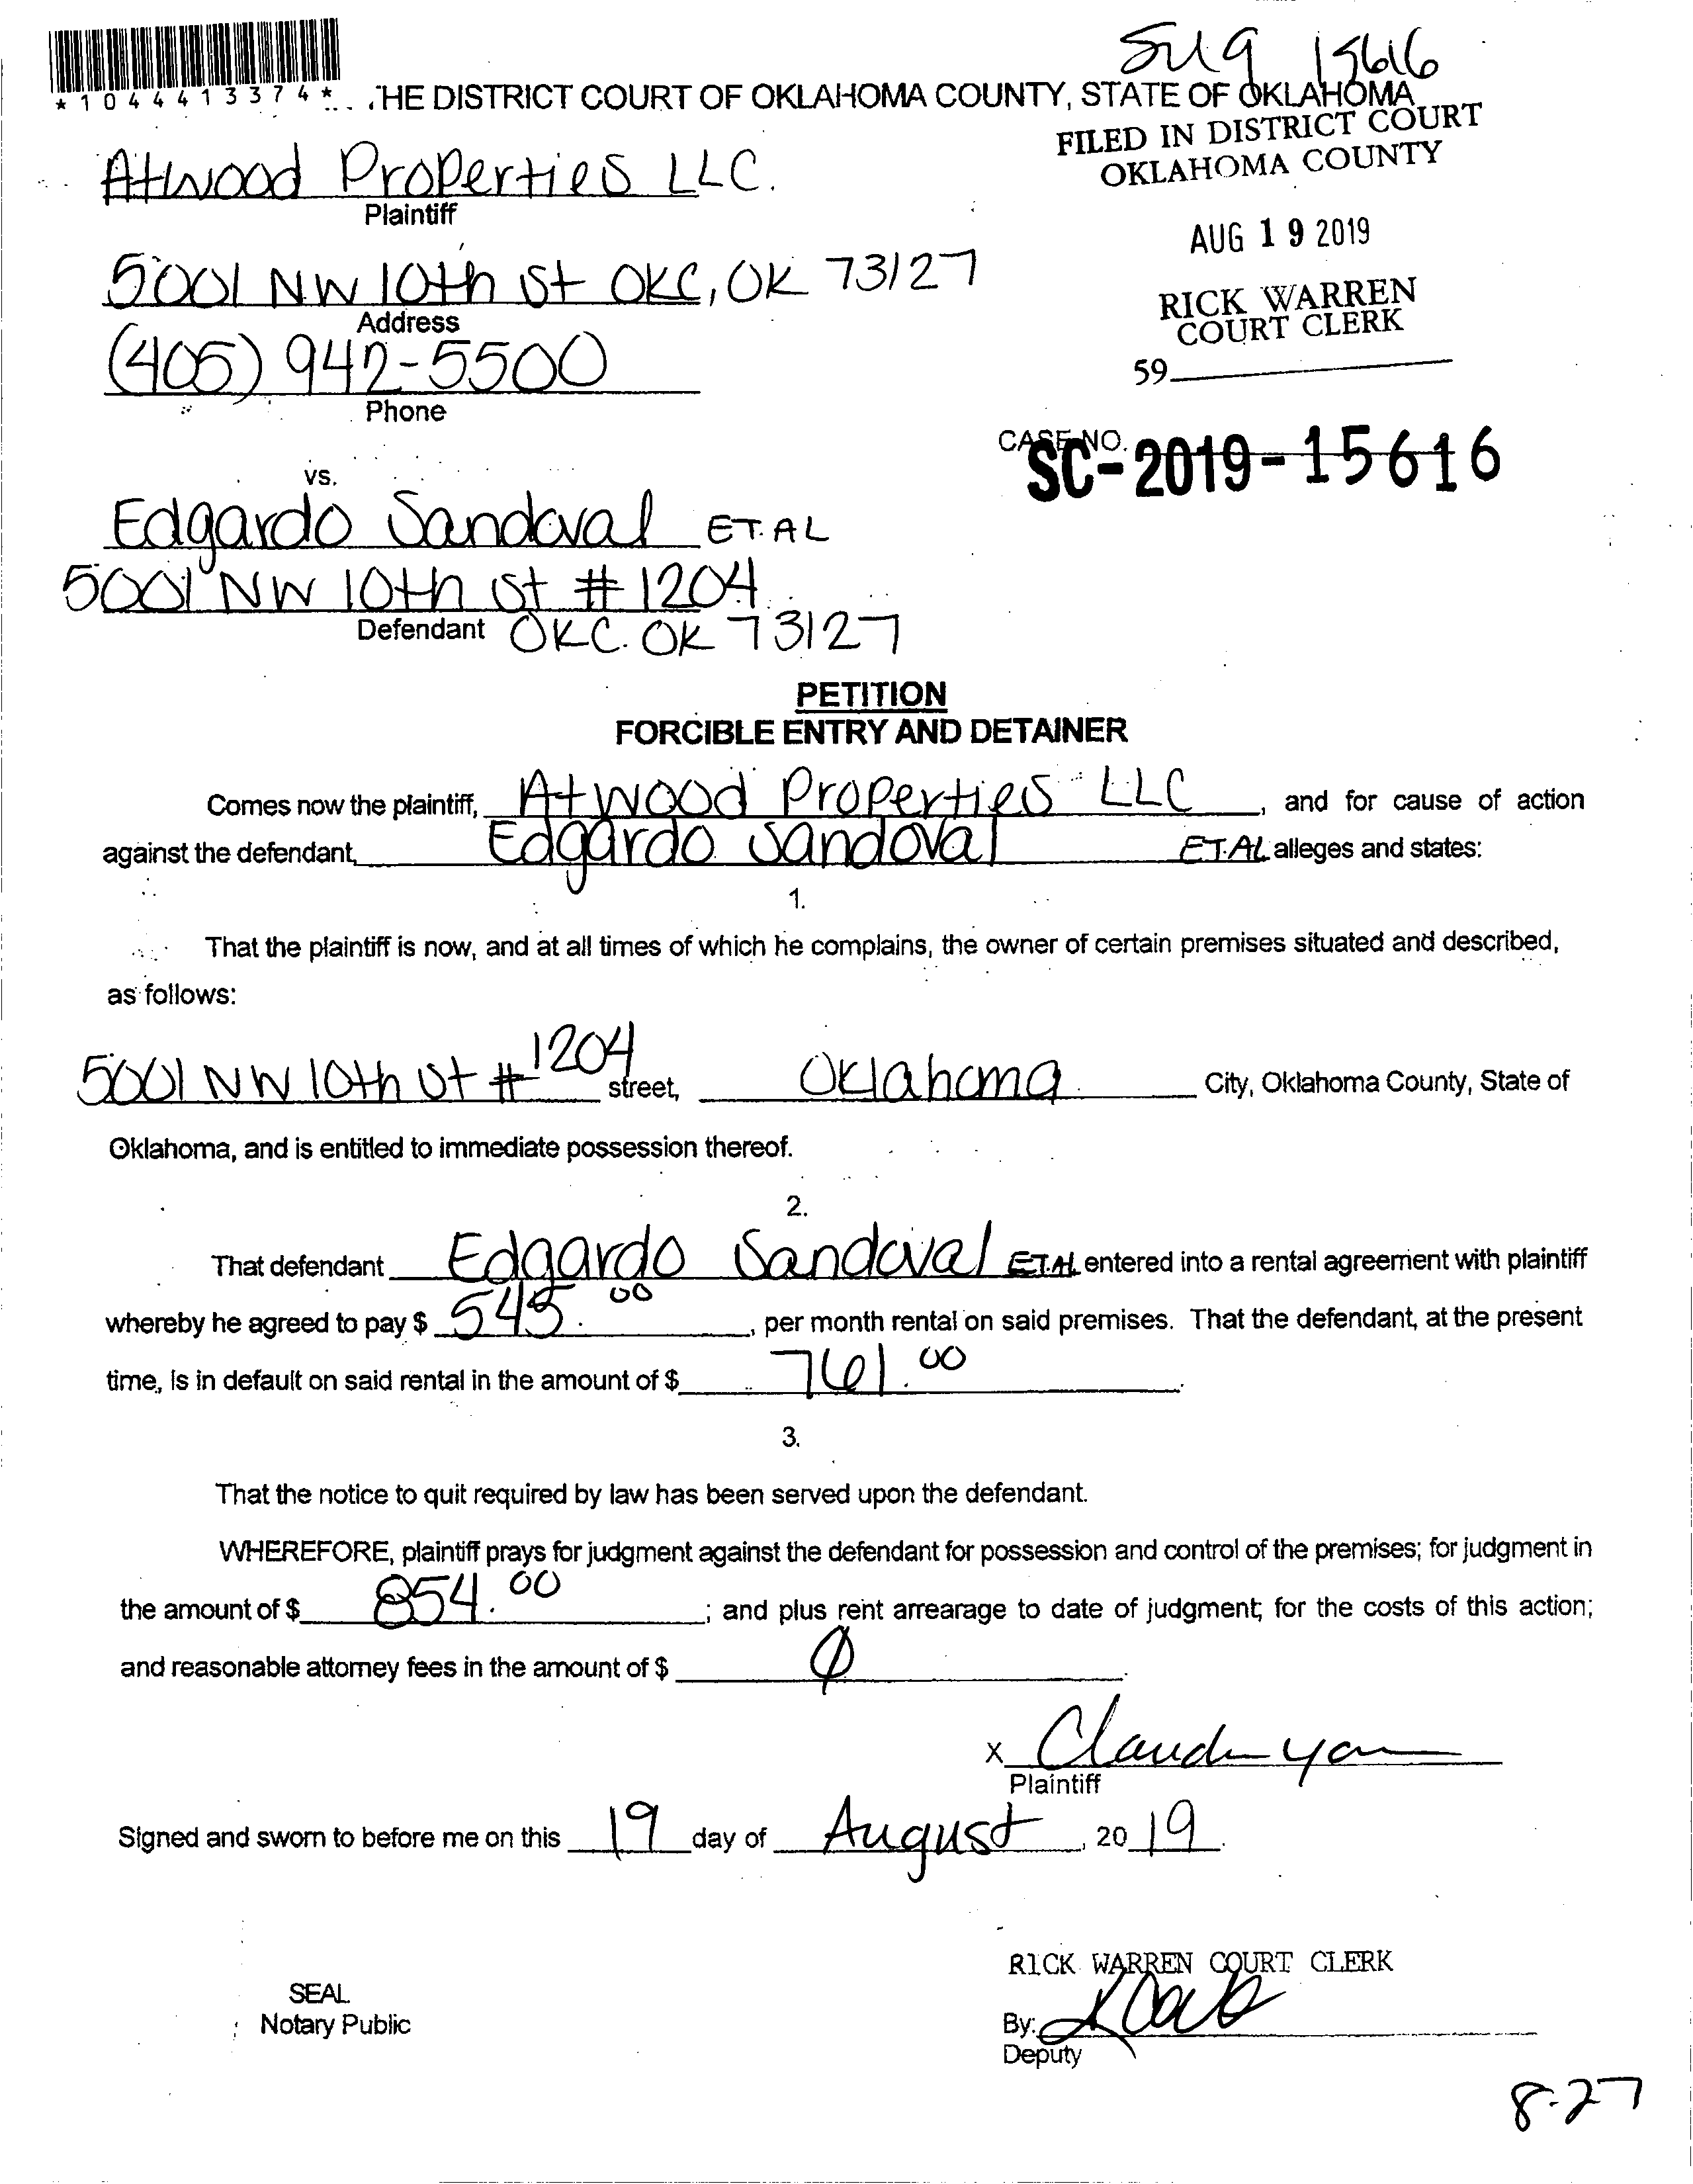 SM9 15616
*1044413374* THE DISTRICT COURT OF OKLAHOMA COUNTY, STATE OF OKLAHOMA
FILED IN DISTRICT COURT
OKLAHOMA COUNTY
Atwood Properties LLC.
Plaintiff
AUG 19 2019
5001 NW 10th St OKC, OK 73127
Address
RICK WARREN
COURT CLERK
(405) 942-5500
59
Phone
CASE NO.
SC-2019-15616
vs.
Edgardo Sandoval ET. AL
5001 NW 10th St # 1204
Defendant OKC. OK 73127
PETITION
FORCIBLE ENTRY AND DETAINER
Comes now the plaintiff, Atwood Properties LLC, and for cause of action
against the defendant, Edgardo Sandoval ET.AL alleges and states:
1.
That the plaintiff is now, and at all times of which he complains, the owner of certain premises situated and described,
as follows:
5001 NW 10th St # 1204 street, Oklahoma City, Oklahoma County, State of
Oklahoma, and is entitled to immediate possession thereof.
2.
That defendant Edgardo Sandoval ET.AL entered into a rental agreement with plaintiff
whereby he agreed to pay $ 545.00, per month rental on said premises. That the defendant, at the present
time, is in default on said rental in the amount of $ 761.00.
3.
That the notice to quit required by law has been served upon the defendant.
WHEREFORE, plaintiff prays for judgment against the defendant for possession and control of the premises; for judgment in
the amount of $ 854.00; and plus rent arrearage to date of judgment; for the costs of this action;
and reasonable attorney fees in the amount of $ Ø.
X
Plaintiff
Signed and sworn to before me on this 19 day of August, 2019.
RICK WARREN COURT CLERK
SEAL
Notary Public
By:
Deputy
8-27